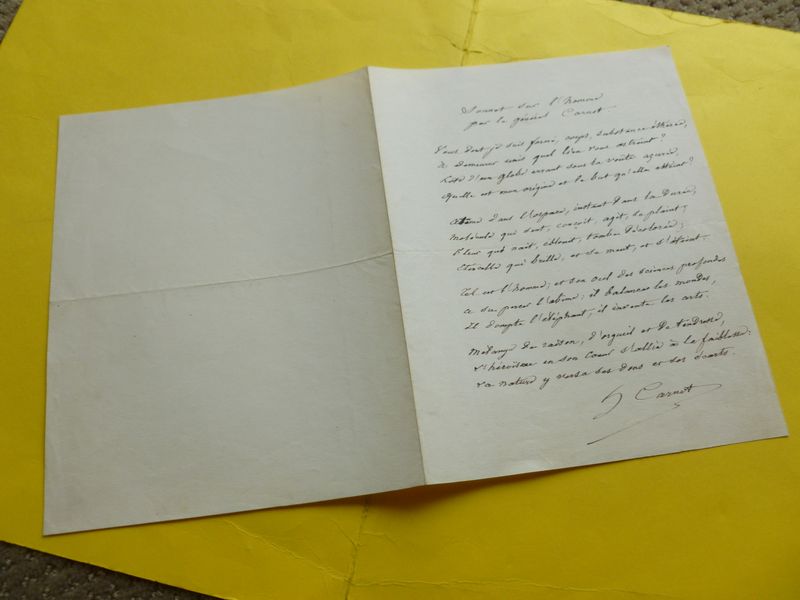 Sonnet sur l'homme
par le général Carnot
Vous dont je suis formé, corps, substance éthérée,
à demeurer unis quel lien vous astreint?
Hôte d'un globe errant sous la voûte azurée,
Quelle est mon origine et le but qu'elle atteint?
Atôme dans l'espace, instant dans la durée,
Molécule qui sent, conçoit, agit, se plaint;
Fleur qui naît, éblouit, tombe décolorée;
Etincelle qui brille, et se meut, et s'éteint.
Tel est l'homme; et son oeil des sciences profondes
a su percer l'abime; il balance les mondes,
Il dompte l'éléphant, il invente les arts.
Mélange de raison, d'orgueil et de tendresse,
L'héroïsme en son coeur s'allie à la faiblesse:
La nature y versa ses dons et ses écarts.
Carnot